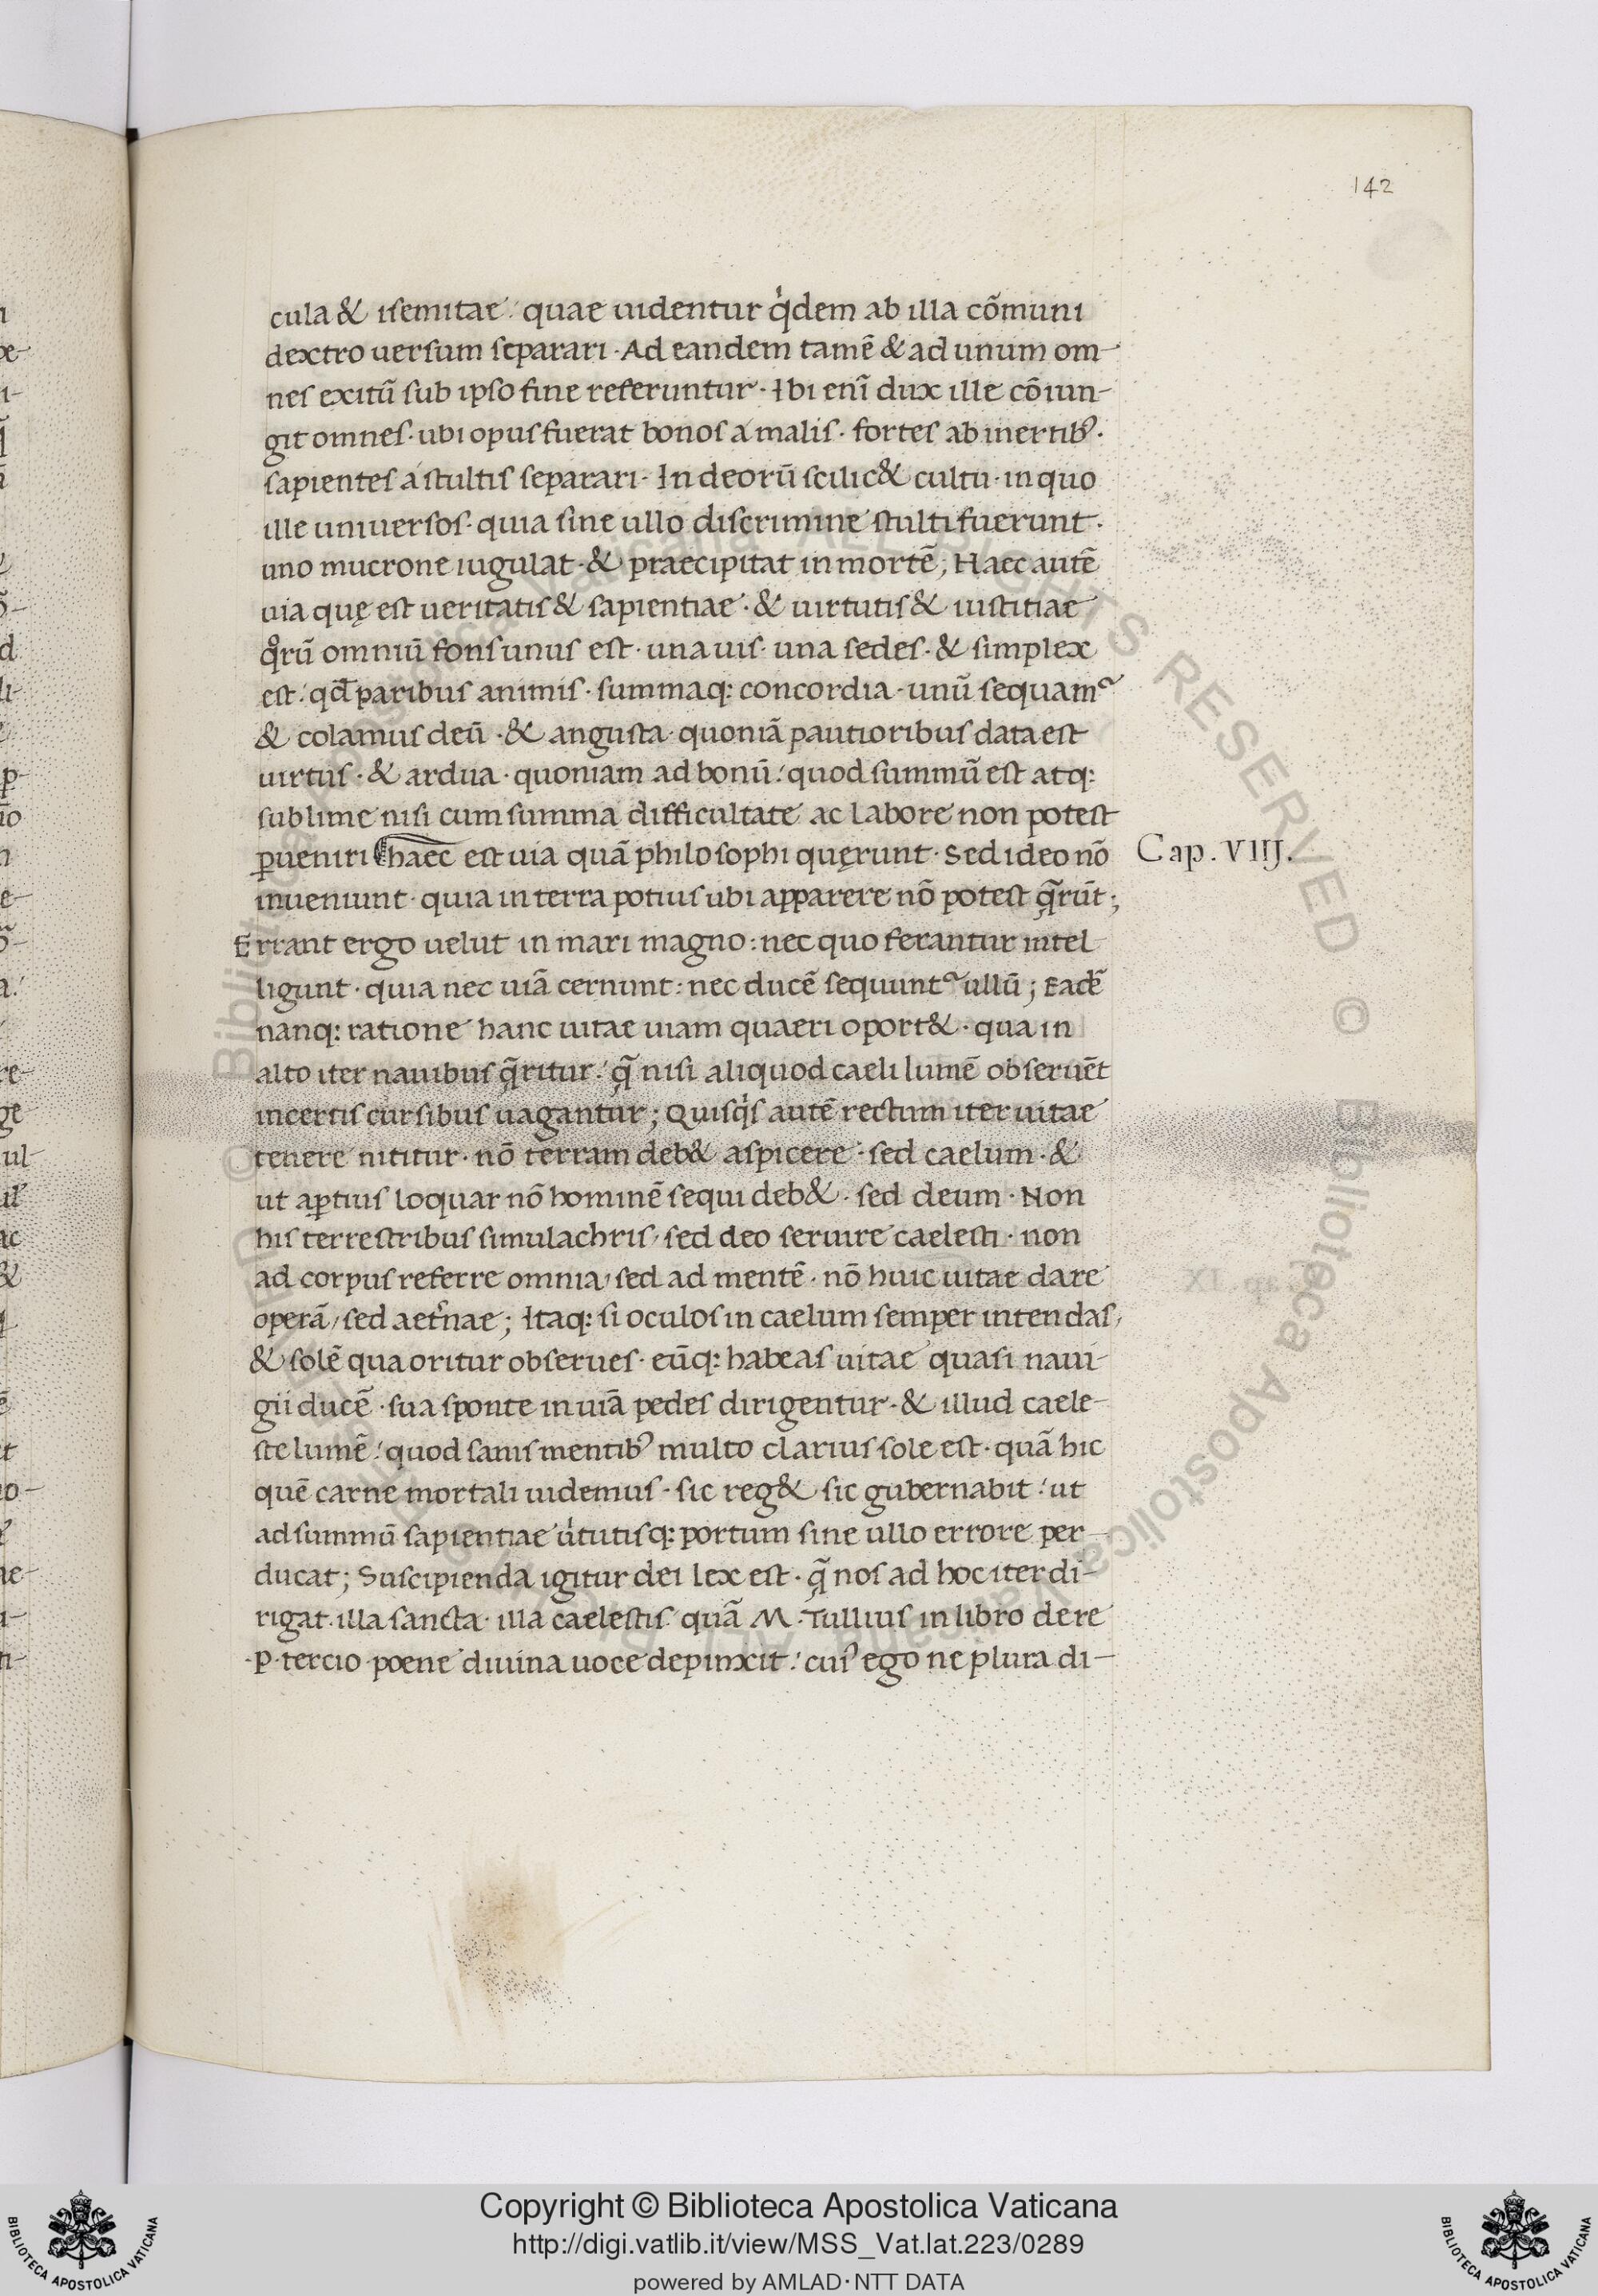 142
cula & isemitae: quae uidentur qͥdem ab illa cōmuni
dextro uersum separari · Ad eandem tamē & ad unum om-
nes exitū sub ipso fine referuntur · Ibi enī dux ille cōiun-
git omnes · ubi opus fuerat bonos á malis · fortes ab inertibꝰ ·
sapientes á stultis separari · In deorū scilic& cultu · in quo
ille uniuersos · quia sine ullo discrimine stulti fuerunt ·
uno mucrone iugulat · & praecipitat in mortē; Haec autē
uia quę est ueritatis & sapientiae · & uirtutis & iustitiae
qͦrū omniū fons unus est · una uis · una sedes · & simplex
est: qd̄ paribus animis · summaq: concordia · unū sequamᷣ
& colamus deū · & angusta · quoniā pautioribus data est
uirtus · & ardua · quoniam ad bonū: quod summū est atq:
sublime nisi cum summa difficultate ac labore non potest
ꝑueniri haec est uia quā philosophi quęrunt · Sed ideo nō
Cap. VIIJ.
inueniunt · quia in terra potius ubi apparere nō potest q̄rūt;
Errant ergo uelut in mari magno: nec quo ferantur intel
ligunt · quia nec uiā cernunt: nec ducē sequuntᷣ ullū; Eadē
nanq: ratione hanc uitae uiam quaeri oport& · qua in
alto iter nauibus q̄ritur: q̄ nisi aliquod caeli lumē obseruēt
incertis cursibus uagantur; Quisqͥs autē rectum iter uitae
tenere nititur · nō terram deb& aspicere · sed caelum · &
ut aꝑtius loquar nō hominē sequi deb& · sed deum · Non
his terrestribus simulachris, sed deo seruire caelesti · non
ad corpus referre omnia, sed ad mentē · nō huic uitae dare
operā, sed aet̃nae; Itaq: si oculos in caelum semper intendas,
& solē qua oritur obserues · eūq: habeas uitae quasi naui-
gii ducē · sua sponte in uiā pedes dirigentur · & illud caele-
ste lumē: quod sanis mentibꝰ multo clarius sole est · quā hic
quē carne mortali uidemus · sic reg& sic gubernabit: ut
ad summū sapientiae uͥtutisq: portum sine ullo errore per-
ducat; Suscipienda igitur dei lex est · q̄ nos ad hoc iter di-
rigat · illa sancta · illa caelestis quā M · Tullius in libro de re
· P · tercio poene diuina uoce depinxit: cuiꝰ ego ne plura di-
Copyright © Biblioteca Apostolica Vaticana
http://digi.vatlib.it/view/MSS_Vat.lat.223/0289
powered by AMLAD·NTT DATA